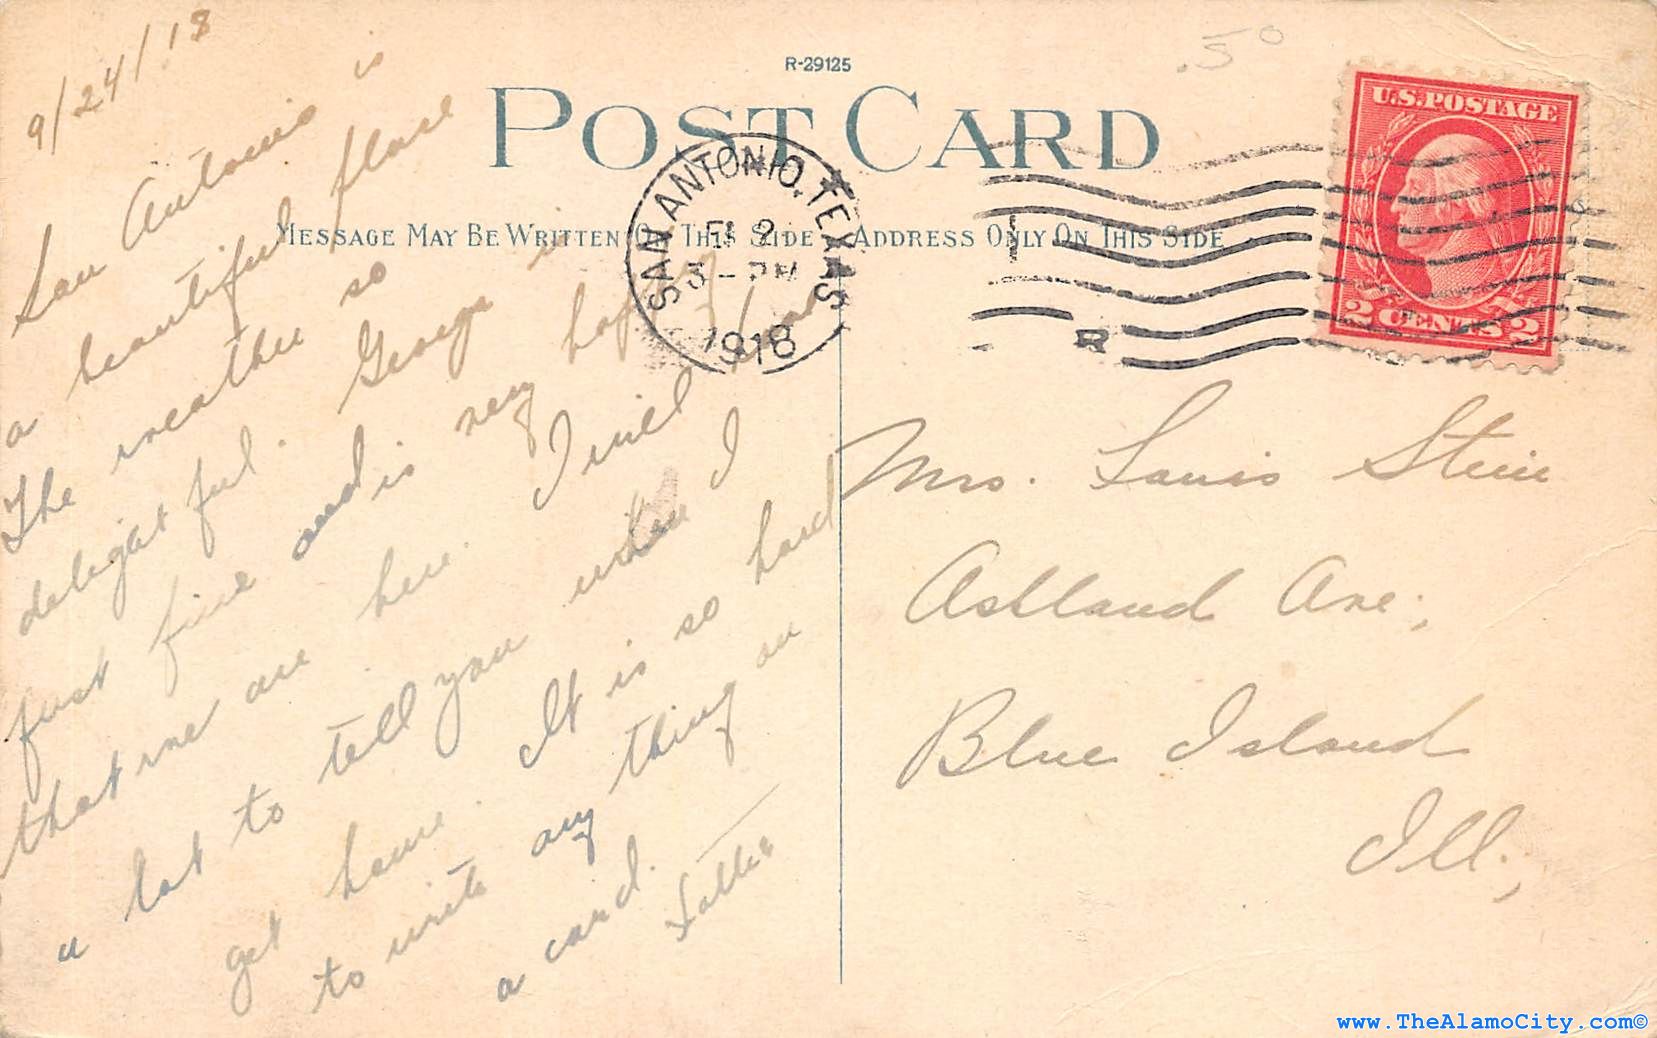 9/24/18
R-29125
.50
POST CARD
U.S. POSTAGE
2 CENTS 2
SAN ANTONIO, TEXAS
2
3 - PM
1918
MESSAGE MAY BE WRITTEN ON THIS SIDE
ADDRESS ONLY ON THIS SIDE
San Antonio is
a beautiful place
The weather so
delightful. George is
just fine and is very happy
that we are here. I will have
a lot to tell you when I
get home. It is so hard
to write any thing on
a card.
Mrs. Louis Stein
Ashland Ave.,
Blue Island
Ill.,
www.TheAlamoCity.com©